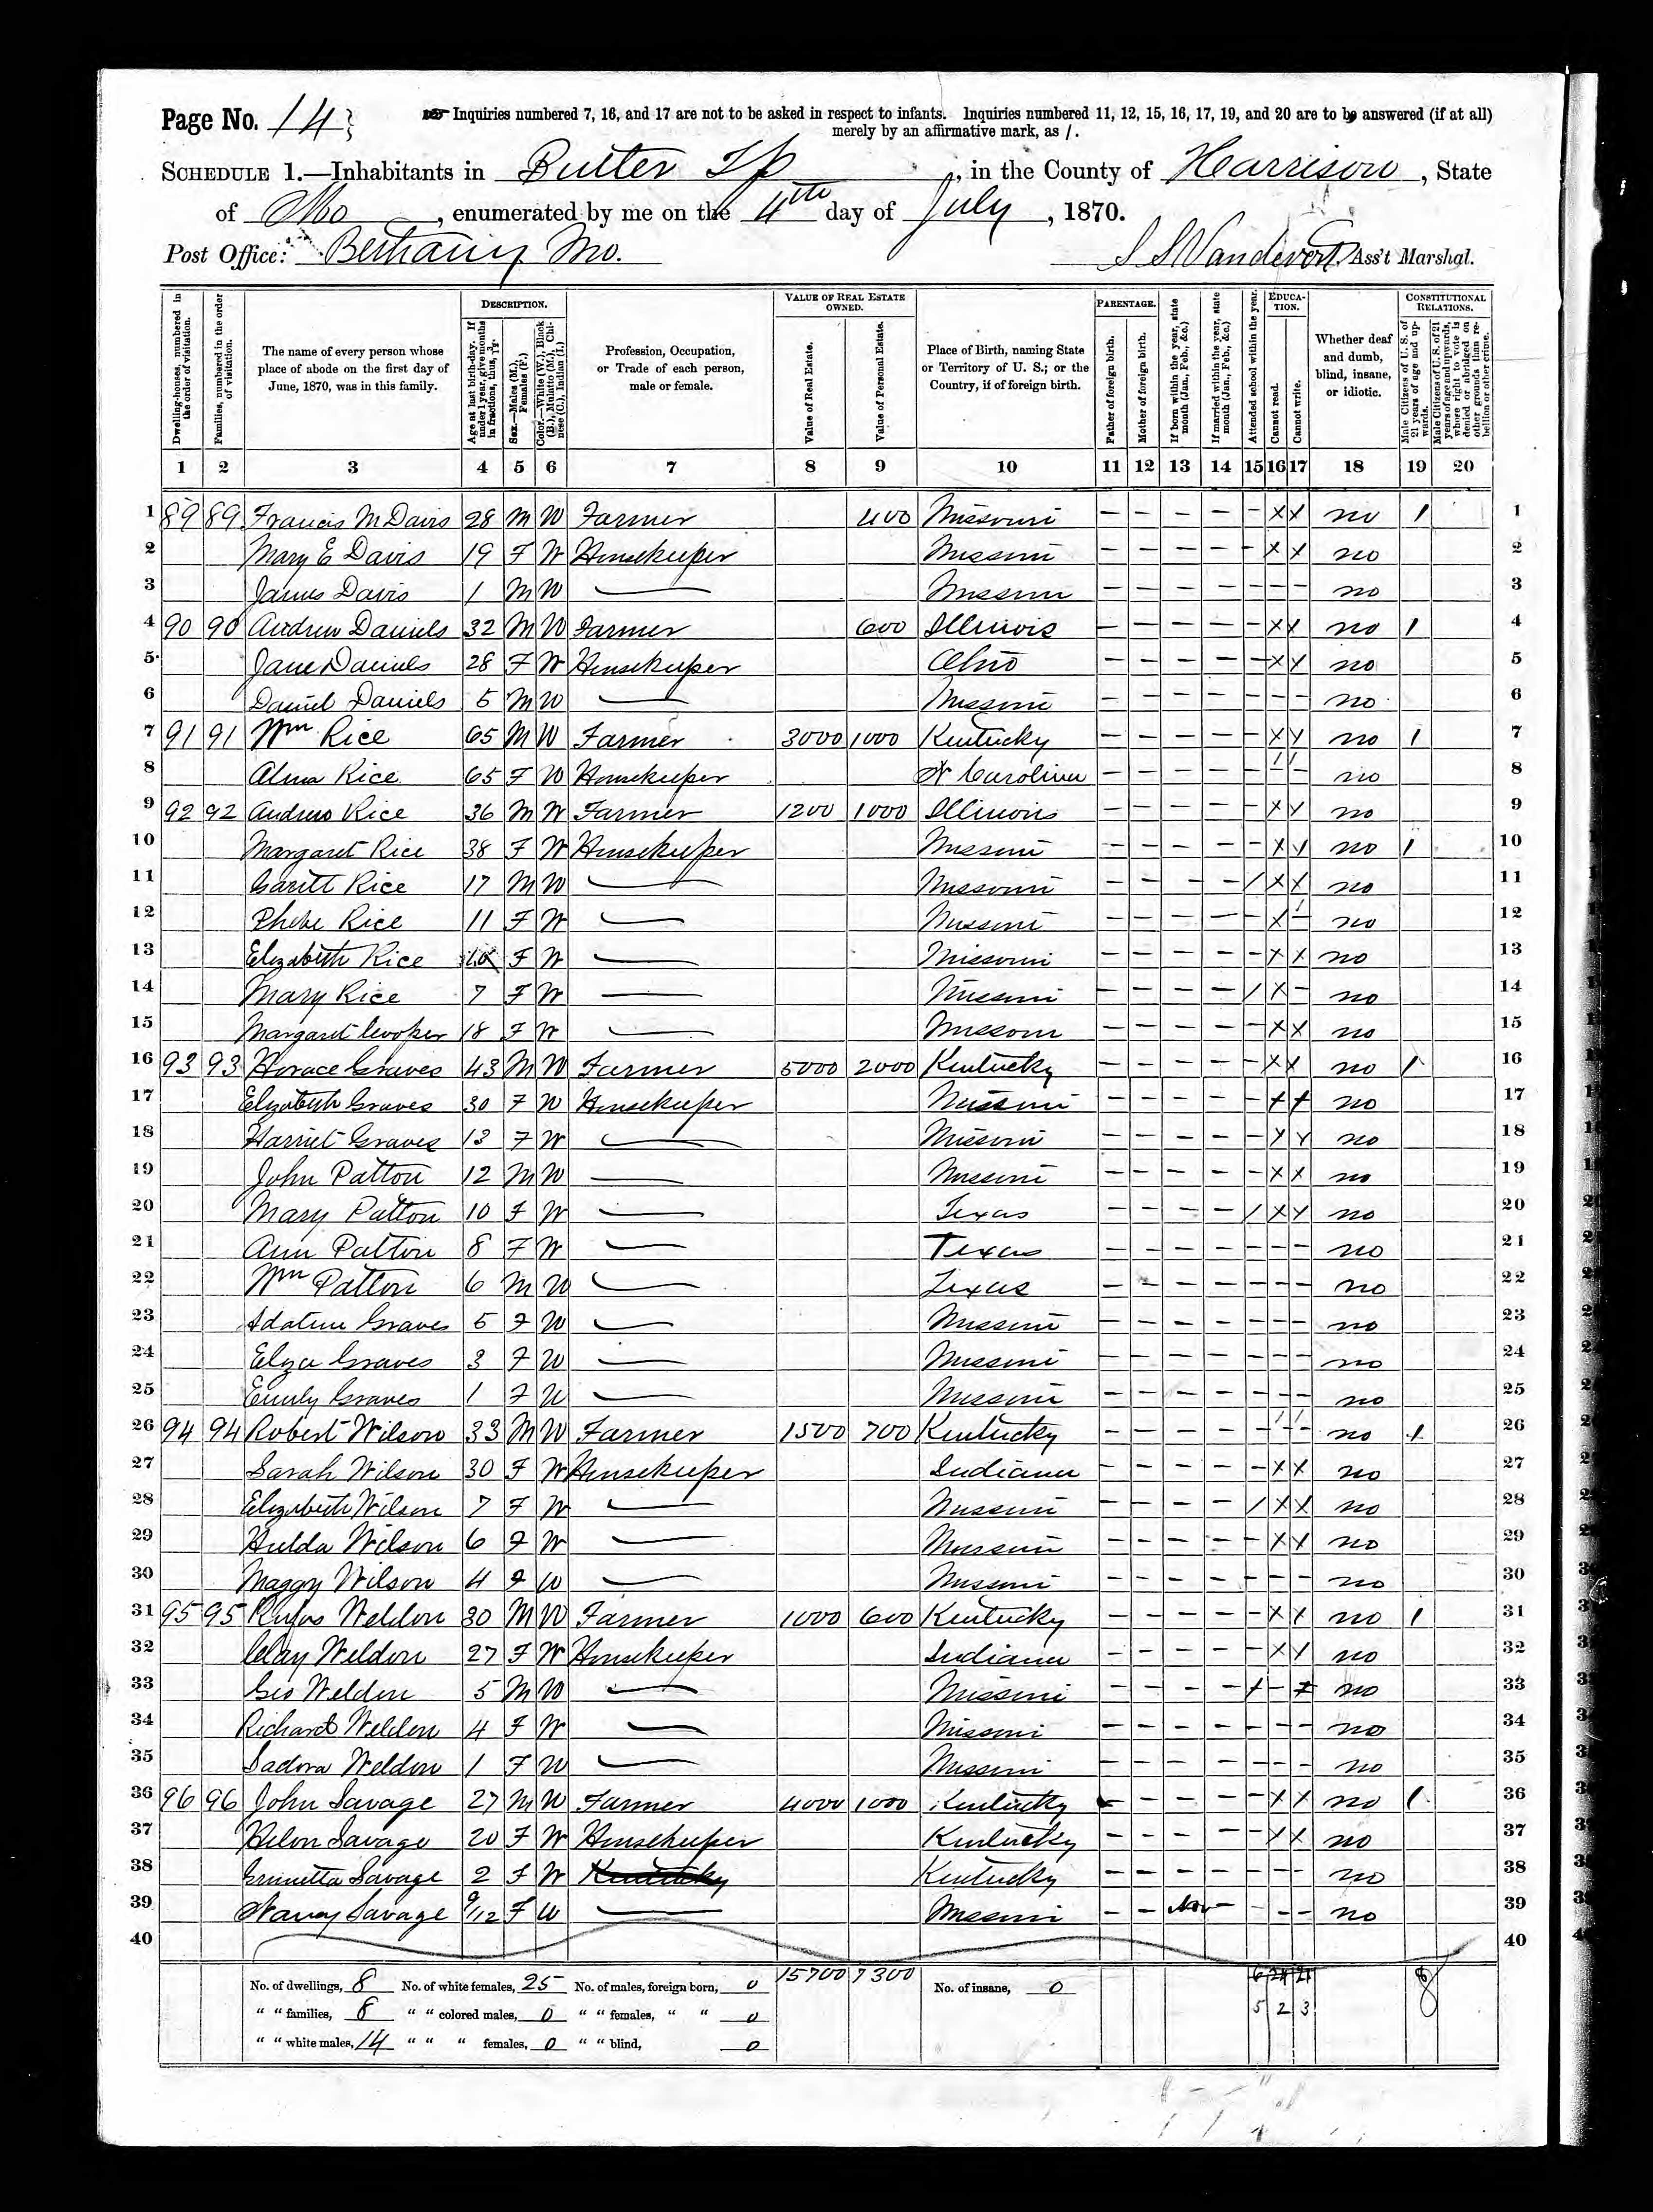 Page No. 14
Inquiries numbered 7, 16, and 17 are not to be asked in respect to infants. Inquiries numbered 11, 12, 15, 16, 17, 19, and 20 are to be answered (if at all)
merely by an affirmative mark, as /.
SCHEDULE 1.—Inhabitants in Butler Tp, in the County of Harrison, State
of Mo, enumerated by me on the 4th day of July, 1870.
Post Office: Bethany Mo. S S Vandevert, Ass't Marshal.
Dwelling-houses, numbered in the order of visitation.
Families, numbered in the order of visitation.
The name of every person whose place of abode on the first day of June, 1870, was in this family.
DESCRIPTION.
Age at last birth-day. If under 1 year, give months in fractions, thus, 3/12.
Sex.—Males (M.), Females (F.)
Color.—White (W.), Black (B.), Mulatto (M.), Chinese (C.), Indian (I.)
Profession, Occupation, or Trade of each person, male or female.
VALUE OF REAL ESTATE OWNED.
Value of Real Estate.
Value of Personal Estate.
Place of Birth, naming State or Territory of U. S.; or the Country, if of foreign birth.
PARENTAGE.
Father of foreign birth.
Mother of foreign birth.
If born within the year, state month (Jan., Feb., &c.)
If married within the year, state month (Jan., Feb., &c.)
Attended school within the year.
EDUCATION.
Cannot read.
Cannot write.
Whether deaf and dumb, blind, insane, or idiotic.
CONSTITUTIONAL RELATIONS.
Male Citizens of U. S. of 21 years of age and upwards.
Male Citizens of U. S. of 21 years of age and upwards, whose right to vote is denied or abridged on other grounds than rebellion or other crime.
1 2 3 4 5 6 7 8 9 10 11 12 13 14 15 16 17 18 19 20
1 89 89 Francis M Davis 28 M W Farmer 400 Missouri — — — — — X X no / 1
2 Mary E Davis 19 F W Housekeeper Missouri — — — — — X X no 2
3 James Davis 1 M W — Missouri — — — — — — — no 3
4 90 90 Andrew Daniels 32 M W Farmer 600 Illinois — — — — — X X no / 4
5 Jane Daniels 28 F W Housekeeper Ohio — — — — — X X no 5
6 Daniel Daniels 5 M W — Missouri — — — — — — — no 6
7 91 91 Wm Rice 65 M W Farmer 3000 1000 Kentucky — — — — — X X no / 7
8 Alma Rice 65 F W Housekeeper N Carolina — — — — — / / no 8
9 92 92 Andrew Rice 36 M W Farmer 1200 1000 Illinois — — — — — X X no 9
10 Margaret Rice 38 F W Housekeeper Missouri — — — — — X X no / 10
11 Garitt Rice 17 M W — Missouri — — — — / X X no 11
12 Phebe Rice 11 F W — Missouri — — — — — X / no 12
13 Elizabeth Rice F W — Missouri — — — — — X X no 13
14 Mary Rice 7 F W — Missouri — — — — / X — no 14
15 Margaret Cooper 18 F W — Missouri — — — — — X X no 15
16 93 93 Horace Graves 43 M W Farmer 5000 2000 Kentucky — — — — — X X no / 16
17 Elizabeth Graves 30 F W Housekeeper Missouri — — — — — X X no 17
18 Harriet Graves 13 F W — Missouri — — — — — X X no 18
19 John Patton 12 M W — Missouri — — — — — X X no 19
20 Mary Patton 10 F W — Texas — — — — / X X no 20
21 Ann Patton 8 F W — Texas — — — — — — — no 21
22 Wm Patton 6 M W — Texas — — — — — — — no 22
23 Adaline Graves 5 F W — Missouri — — — — — — — no 23
24 Eliza Graves 3 F W — Missouri — — — — — — — no 24
25 Emily Graves 1 F W — Missouri — — — — — — — no 25
26 94 94 Robert Wilson 33 M W Farmer 1500 700 Kentucky — — — — — / / no / 26
27 Sarah Wilson 30 F W Housekeeper Indiana — — — — — X X no 27
28 Elizabeth Wilson 7 F W — Missouri — — — — / X X no 28
29 Hulda Wilson 6 F W — Missouri — — — — — X X no 29
30 Maggy Wilson 4 F W — Missouri — — — — — — — no 30
31 95 95 Rufus Weldon 30 M W Farmer 1000 600 Kentucky — — — — — X X no / 31
32 Clay Weldon 27 F W Housekeeper Indiana — — — — — X X no 32
33 Geo Weldon 5 M W — Missouri — — — — no 33
34 Richard Weldon 4 F W — Missouri — — — — — — — no 34
35 Sadora Weldon 1 F W — Missouri — — — — — — — no 35
36 96 96 John Savage 27 M W Farmer 4000 1000 Kentucky — — — — — X X no / 36
37 Helon Savage 20 F W Housekeeper Kentucky — — — — — X X no 37
38 Savage 2 F W Kentucky Kentucky — — — — — — — no 38
39 Nancy Savage 9/12 F W — Missouri — — Nov — — — — no 39
40 40
No. of dwellings, 8 No. of white females, 25 No. of males, foreign born, 0 15700 7300 No. of insane, 0 6 21 21 8
" " families, 8 " " colored males, 0 " " females, " " 0 5 2 3
" " white males, 14 " " " females, 0 " " blind, 0